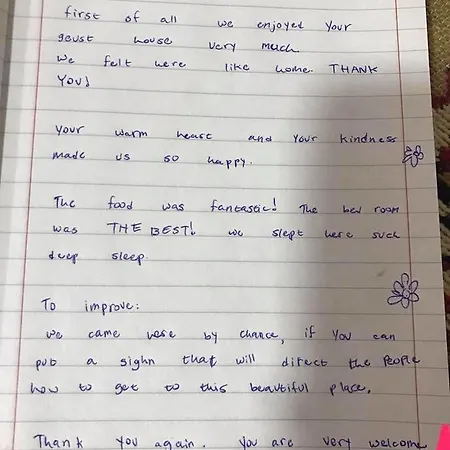 first of all we enjoyed your
geust house very much
we felt here like home. THANK
YOU!
Your warm heart and your kindness
made us so happy.
The food was fantastic! The bed room
was THE BEST! we slept here such
deep sleep
To improve:
we came here by chance, if you can
put a sighn that will direct the people
how to get to this beautiful place.
Thank you again. You are very welcome